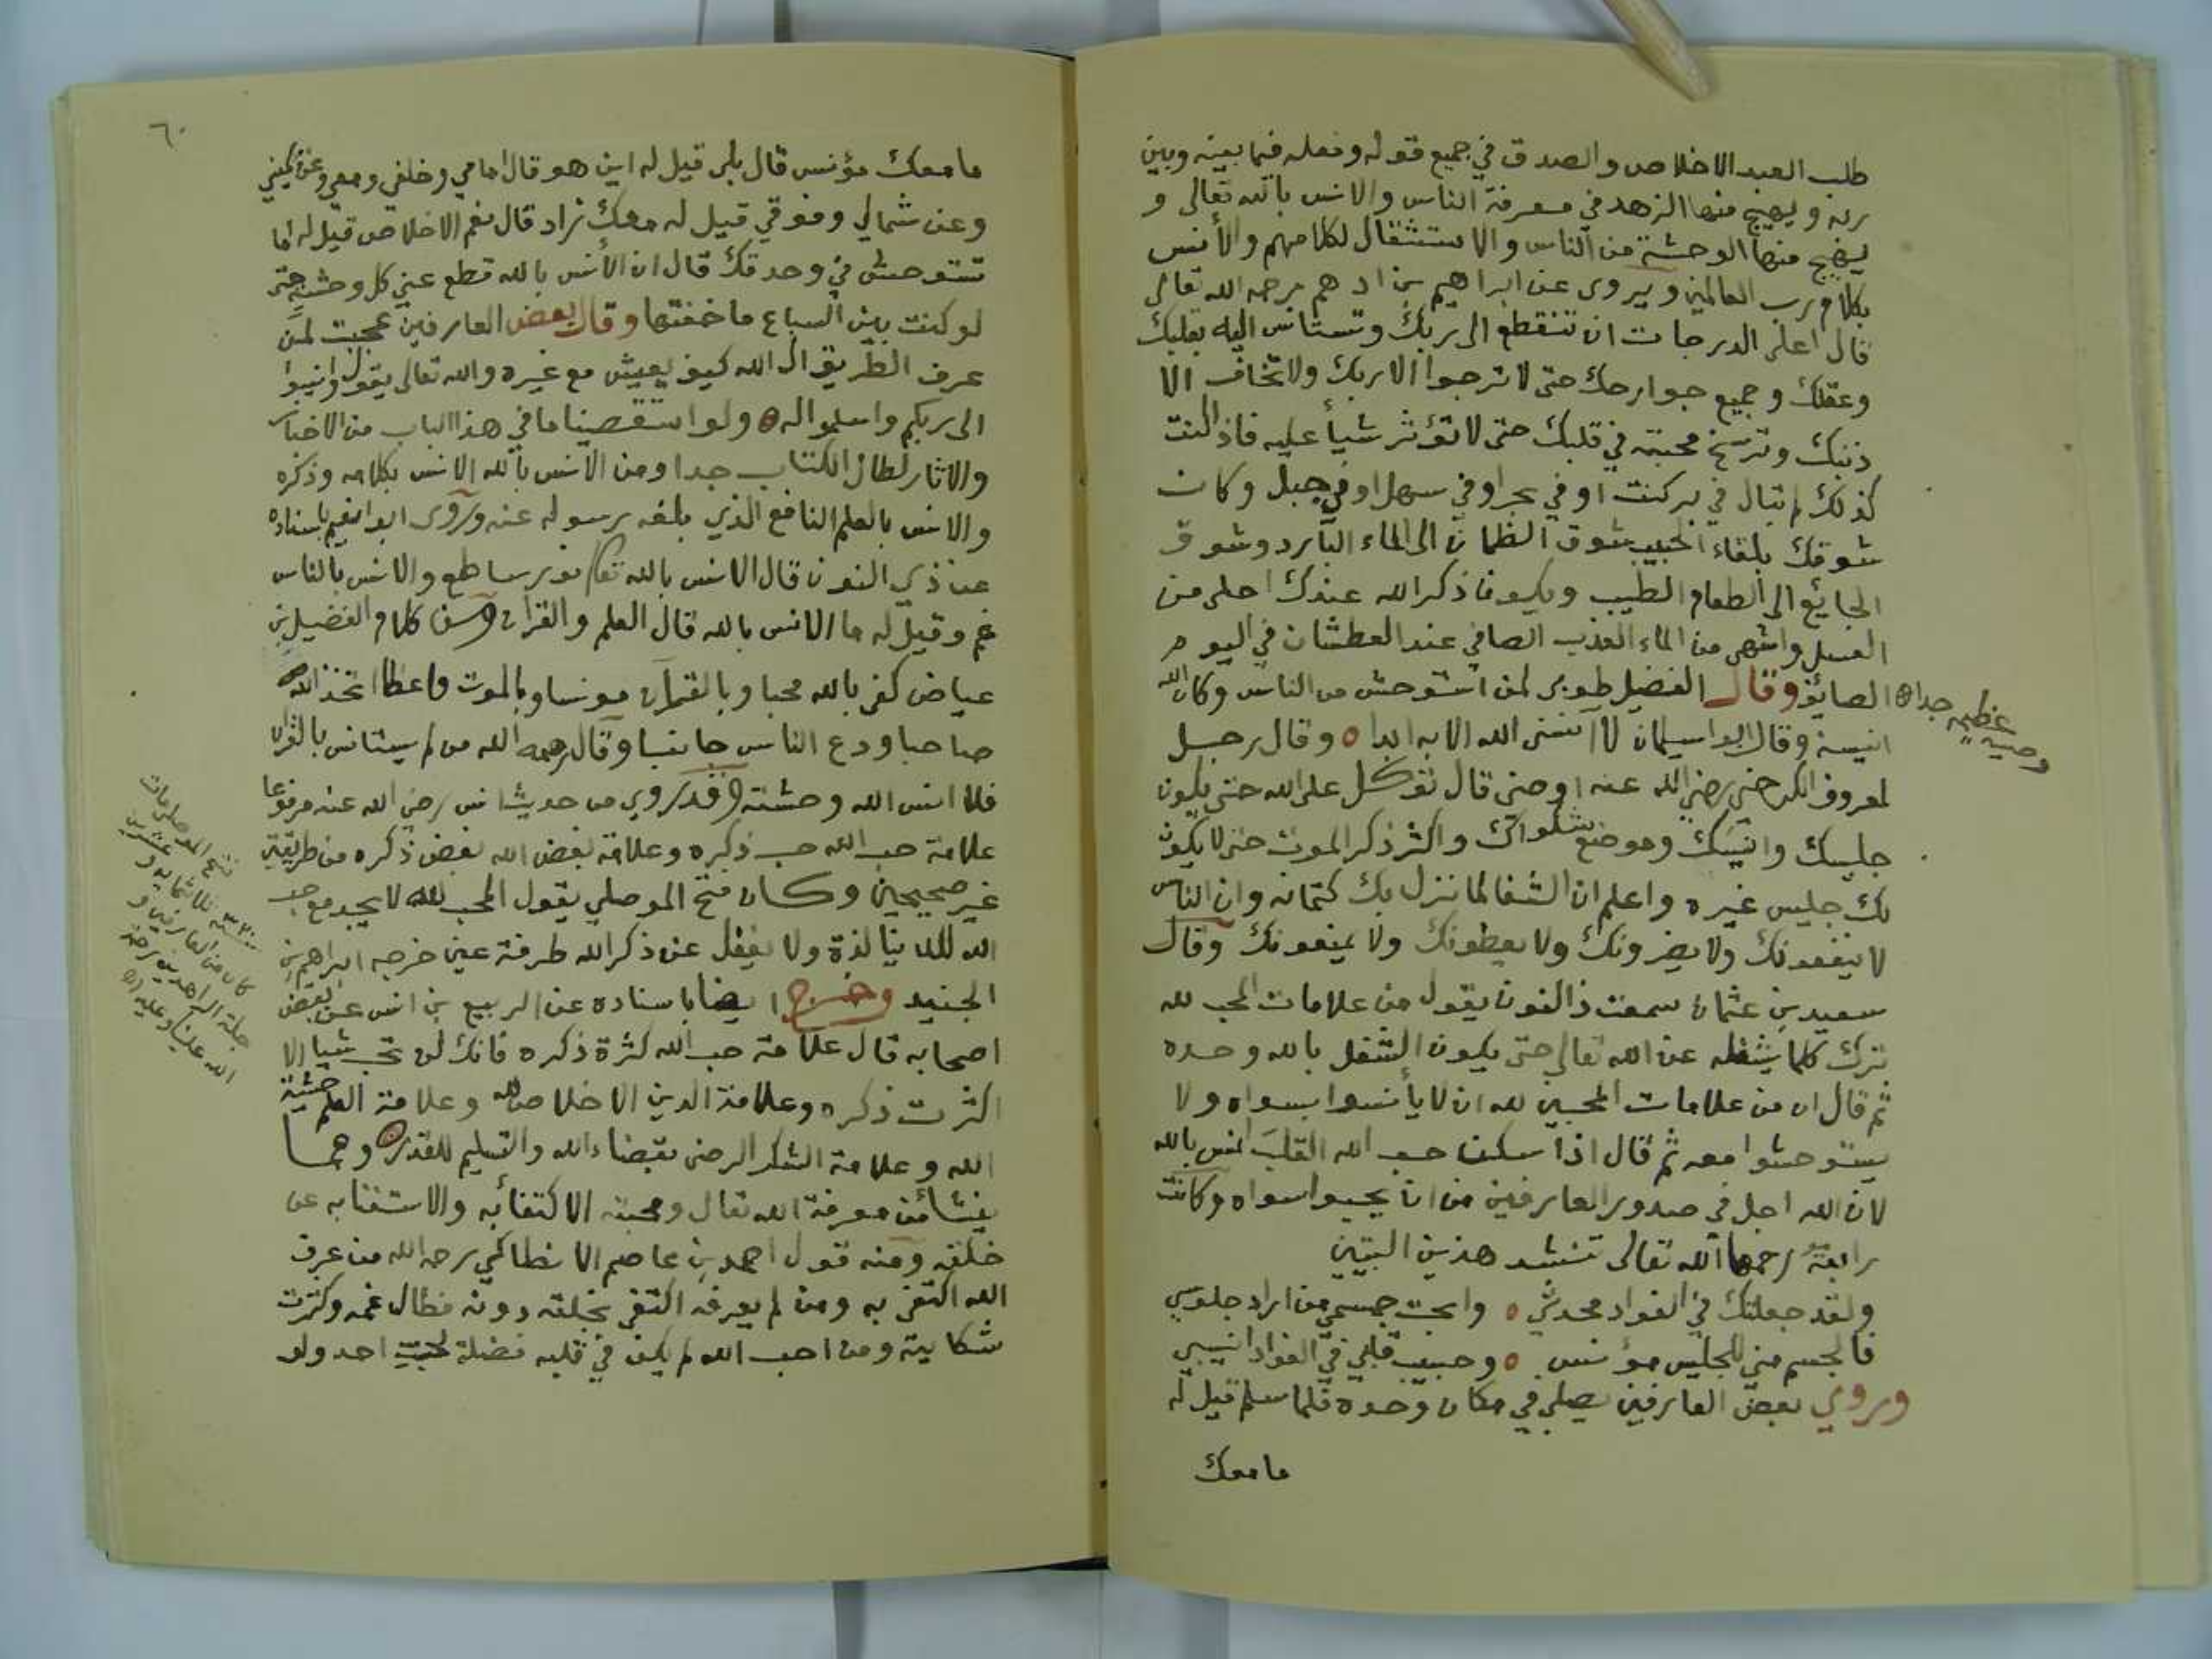 طلب العبد الاخلاص والصدق في جميع قوله وفعله فيما بينه وبين
ربه ويهيج منها الزهد في معرفة الناس والانس بالله تعالى و
يهيج منها الوحشة من الناس والاستثقال لكلامهم والأنس
بكلام رب العالمين ويروى عن ابراهيم بن ادهم رحمه الله تعالى
قال اعلى الدرجات ان تنقطع الى ربك وتستانس اليه بقلبك
وعقلك وجميع جوارحك حتى لا ترجوا الا ربك ولا تخاف الا
ذنبك وترسخ محبته في قلبك حتى لا تؤثر شيأ عليه فاذا كنت
كذلك لم تبال في بر كنت او في بحر او في سهل او في جبل وكان
شوقك بلقاء الحبيب شوق الظمان الى الماء البارد وشوق
الجايع الى الطعام الطيب ويكون ذكر الله عندك احلى من
العسل واشهى من الماء العذب الصافي عند العطشان في اليوم
الصائف وقال الفضيل طوبى لمن استوحش من الناس وكان الله
انيسه وقال ابو اسليمان لا آنسنى الله الا به ابدا ه وقال رجل
لمعروف الكرخي رضي الله عنه اوصني قال توكل على الله حتى يكون
جليسك وانيسك وموضع شكواك واكثر ذكر الموت حتى لا يكون
لك جليس غيره واعلم ان الشفا لما نزل بك كتمانه وان الناس
لا ينفعونك ولا يضرونك ولا يعطونك ولا يمنعونك وقال
سعيد بن عثمان سمعت ذا النون يقول من علامات المحب لله
ترك كلما يشغله عن الله تعالى حتى يكون الشغل بالله وحده
ثم قال ان من علامات المحبين لله ان لا يأنسوا بسواه ولا
يستوحشوا معه ثم قال اذا سكن حب الله القلب انس بالله
لان الله اجل في صدور العارفين من ان يحبوا سواه وكانت
رابعة رحمها الله تعالى تنشد هذين البيتين
ولقد جعلتك في الفواد محدثي ه وابحت جسمي من اراد جلوسي
فالجسم مني للجليس مؤنس ه وحبيب قلبي في الفواد انيسي
وروي بعض العارفين يصلي في مكان وحده فلما سلم قيل له
ما معك
وصية عظيمه جدا
٦٠
ما معك مؤنس قال بلى قيل له اين هو قال امامي وخلفي ومعي وعن يميني
وعن شمالي وفوقي قيل له معك زاد قال نعم الاخلاص قيل له اما
تستوحش في وحدتك قال ان الأنس بالله قطع عني كل وحشة حتى
لو كنت بين السباع ما خفتها وقال بعض العارفين عجبت لمن
عرف الطريق الى الله كيف يعيش مع غيره والله تعالى يقول وانيبوا
الى ربكم واسلموا له ه ولو استقصينا ما في هذا الباب من الاخبار
والاثار لطال الكتاب جدا ومن الانس بالله الانس بكلامه وذكره
والانس بالعلم النافع الذي بلغه رسوله عنه وروى ابو نعيم باسناده
عن ذي النون قال الانس بالله تعا نور ساطع والانس بالناس
غم وقيل له ما الانس بالله قال العلم والقران ومن كلام الفضيل بن
عياض كفى بالله محبا وبالقرآن مونسا وبالموت واعظا اتخذ الله
صاحبا ودع الناس جانبا وقال رحمه الله من لم يستانس بالقران
فلا انس الله وحشته وقد روي من حديث انس رضي الله عنه مرفوعا
علامة حب الله حب ذكره وعلامة بغض الله بغض ذكره من طريقين
غير صحيحين وكان فتح الموصلي يقول المحب لله لا يجد مع حب
الله للدنيا لذة ولا يغفل عن ذكر الله طرفة عين خرجه ابراهيم بن
الجنيد وخرج ايضا باسناده عن الربيع بن انس عن بعض
اصحابه قال علامة حب الله كثرة ذكره فانك لن تحب شيا الا
اكثرت ذكره وعلامة الدين الاخلاص لله وعلامة العلم خشية
الله وعلامة الشكر الرضى بقضاء الله والتسليم للقدر ه ومما
ينشأ من معرفة الله تعالى ومحبته الاكتفاء به والاستغنا به عن
خلقه ومنه قول احمد بن عاصم الانطاكي رحمه الله من عرف
الله اكتفى به ومن لم يعرفه اكتفى بخلقه دونه فطال غمه وكثرت
شكايته ومن احب الله لم يكن في قلبه فضلة لحب احد ولو
فتح الموصلي مات
سنة ثلاثمايه و عشرين
كان من العارفين و
جلة الزاهدين رحمة
الله علينا وعليه